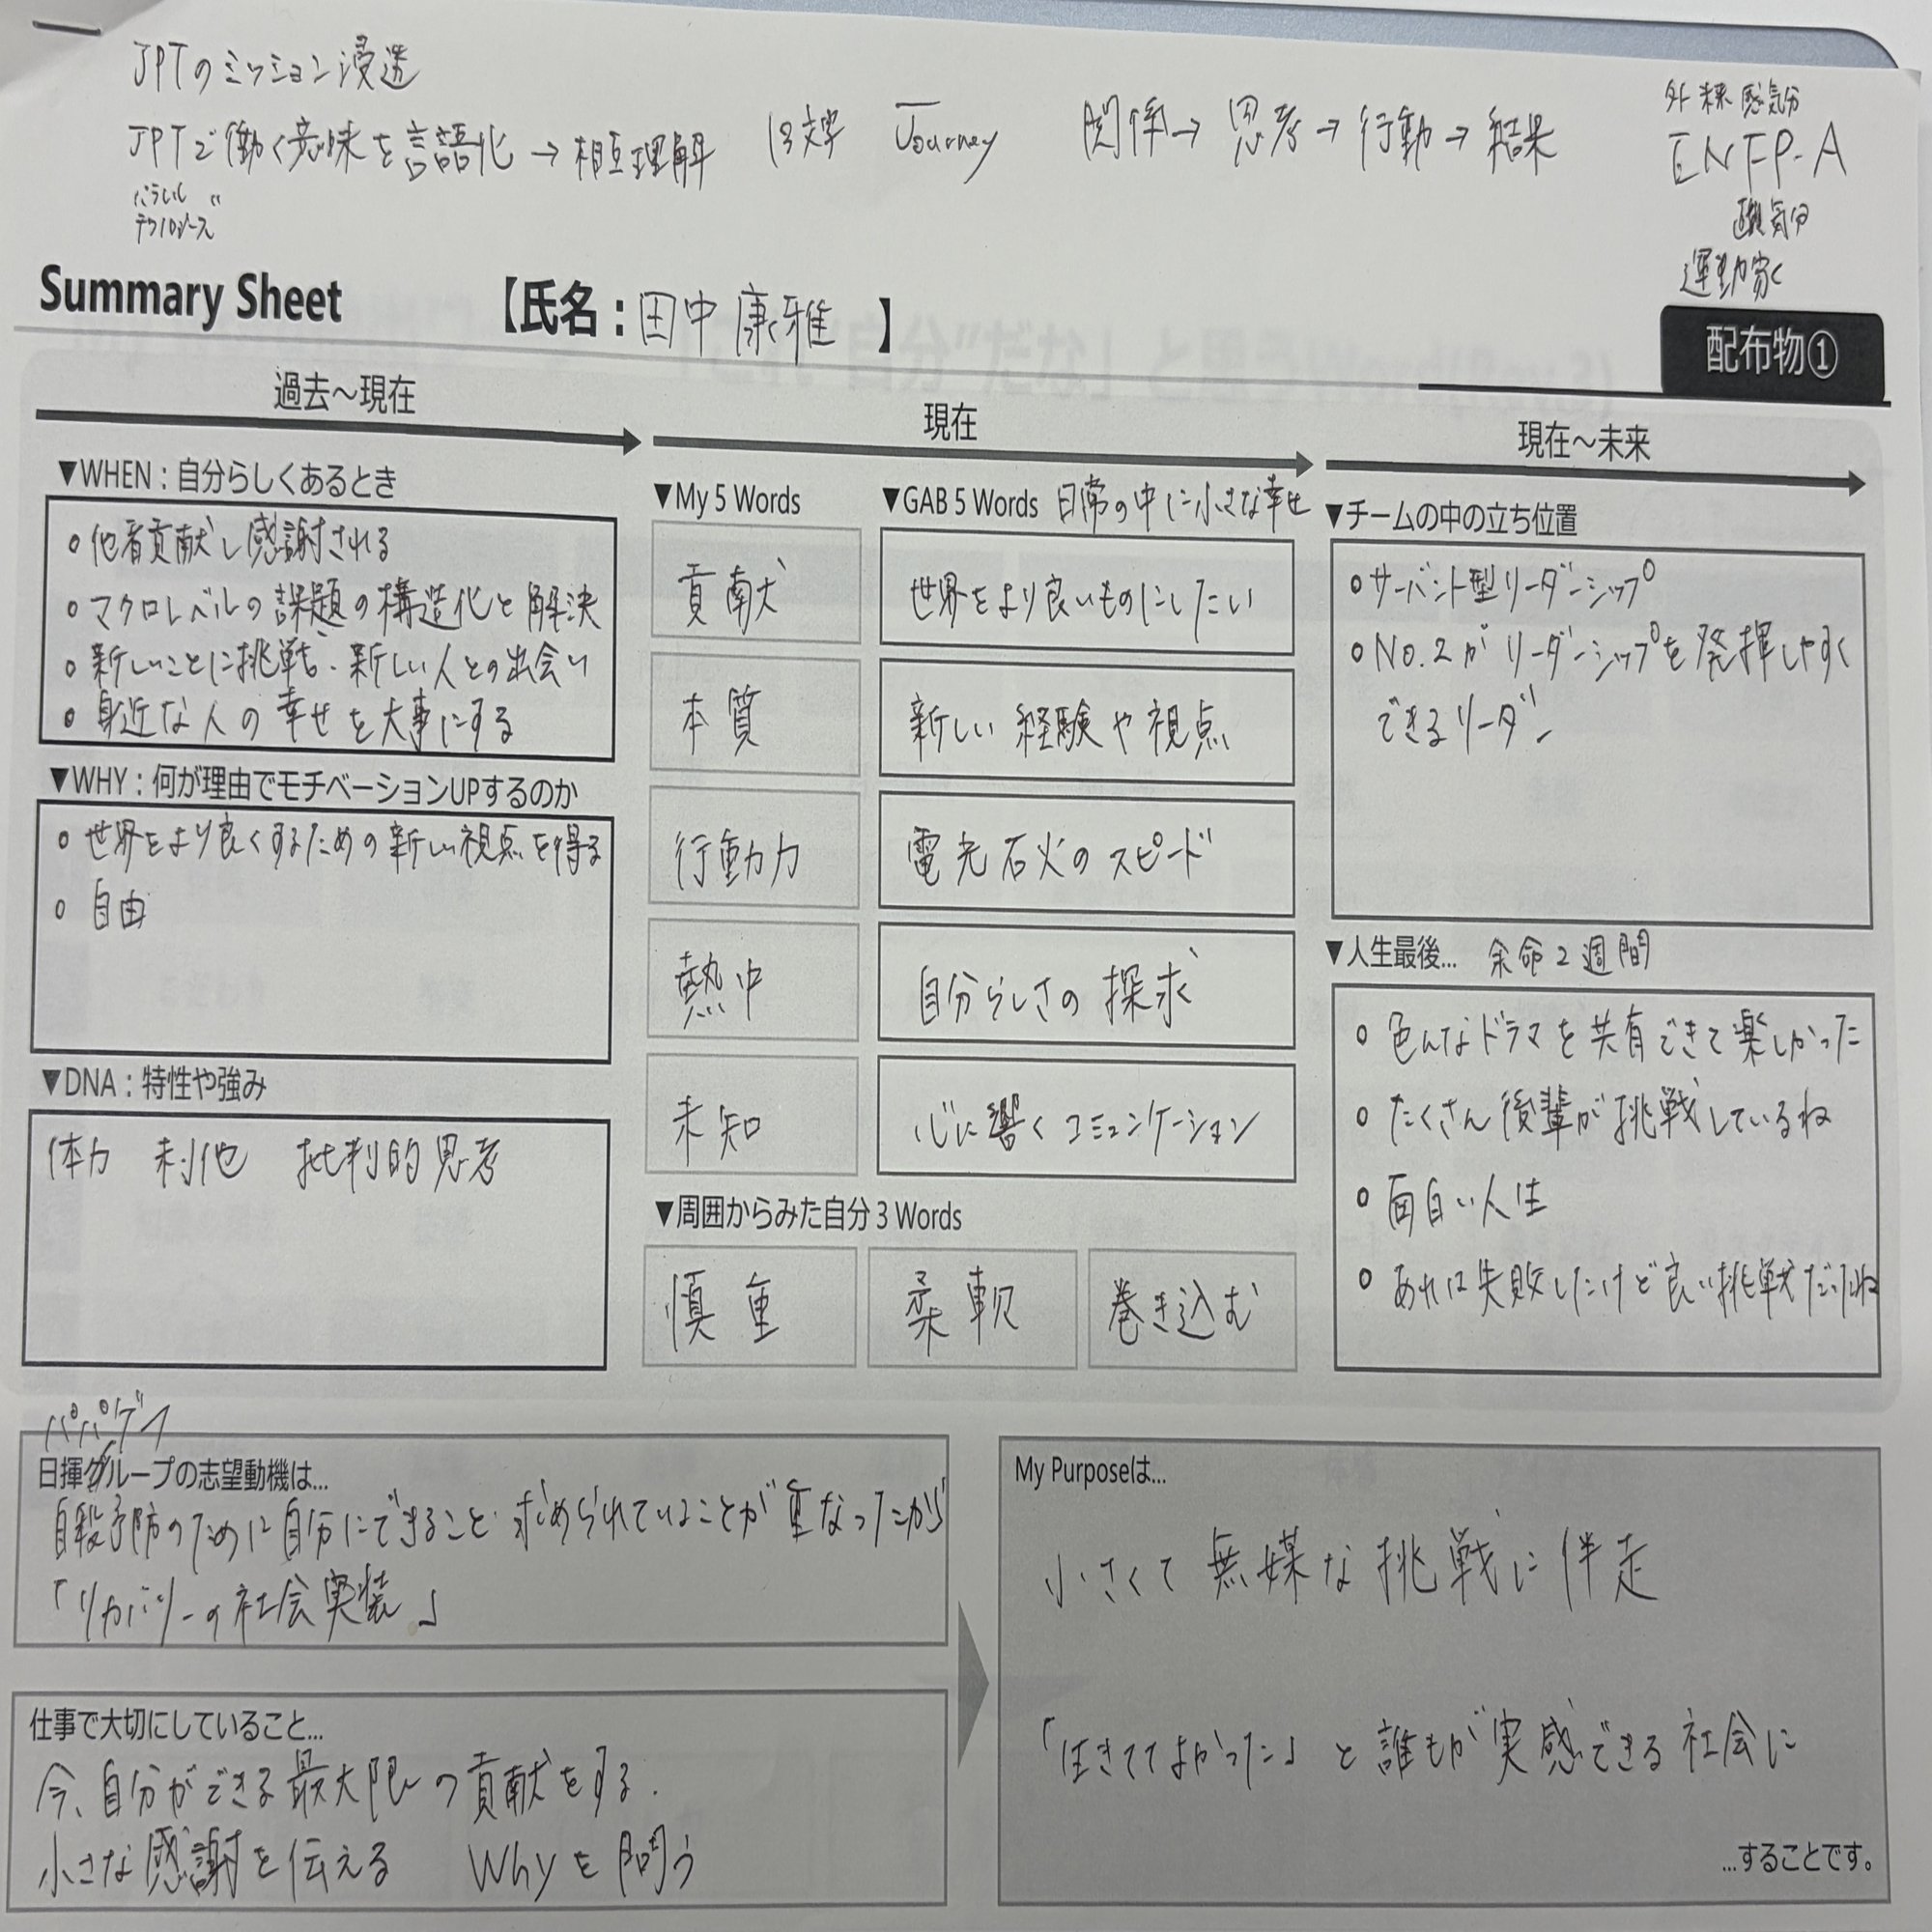 JPTのミッション浸透
JPTで働く意味を言語化→相互理解 13文字 Journey 関係→思考→行動→結果
外来感気分
ENFP-A
気分
運動家
Summary Sheet 【氏名：田中康雅】
配布物①
過去～現在
▼WHEN：自分らしくあるとき
◦他者貢献し感謝される
◦マクロレベルの課題の構造化と解決
◦新しいことに挑戦、新しい人との出会い
◦身近な人の幸せを大事にする
▼WHY：何が理由でモチベーションUPするのか
◦世界をより良くするための新しい視点を得る
◦自由
▼DNA：特性や強み
体力 利他 批判的思考
現在
▼My 5 Words
貢献
本質
行動力
熱中
未知
▼GAB 5 Words 日常の中に小さな幸せ
世界をより良いものにしたい
新しい経験や視点
電光石火のスピード
自分らしさの探求
心に響くコミュニケーション
▼周囲からみた自分 3 Words
慎重
柔軟
巻き込む
現在～未来
▼チームの中の立ち位置
◦サーバント型リーダーシップ
◦No.2がリーダーシップを発揮しやすく
できるリーダー
▼人生最後... 余命2週間
◦色んなドラマを共有できて楽しかった
◦たくさん後輩が挑戦しているね
◦面白い人生
◦あれは失敗したけど良い挑戦だったね
パパゲーノ
日揮グループの志望動機は...
自殺予防のために自分にできること・求められていることが重なったから
「リカバリーの社会実装」
仕事で大切にしていること...
今、自分ができる最大限の貢献をする.
小さな感謝を伝える Whyを問う
My Purposeは...
小さくて無媒な挑戦に伴走
「生きててよかった」と誰もが実感できる社会に
...することです。